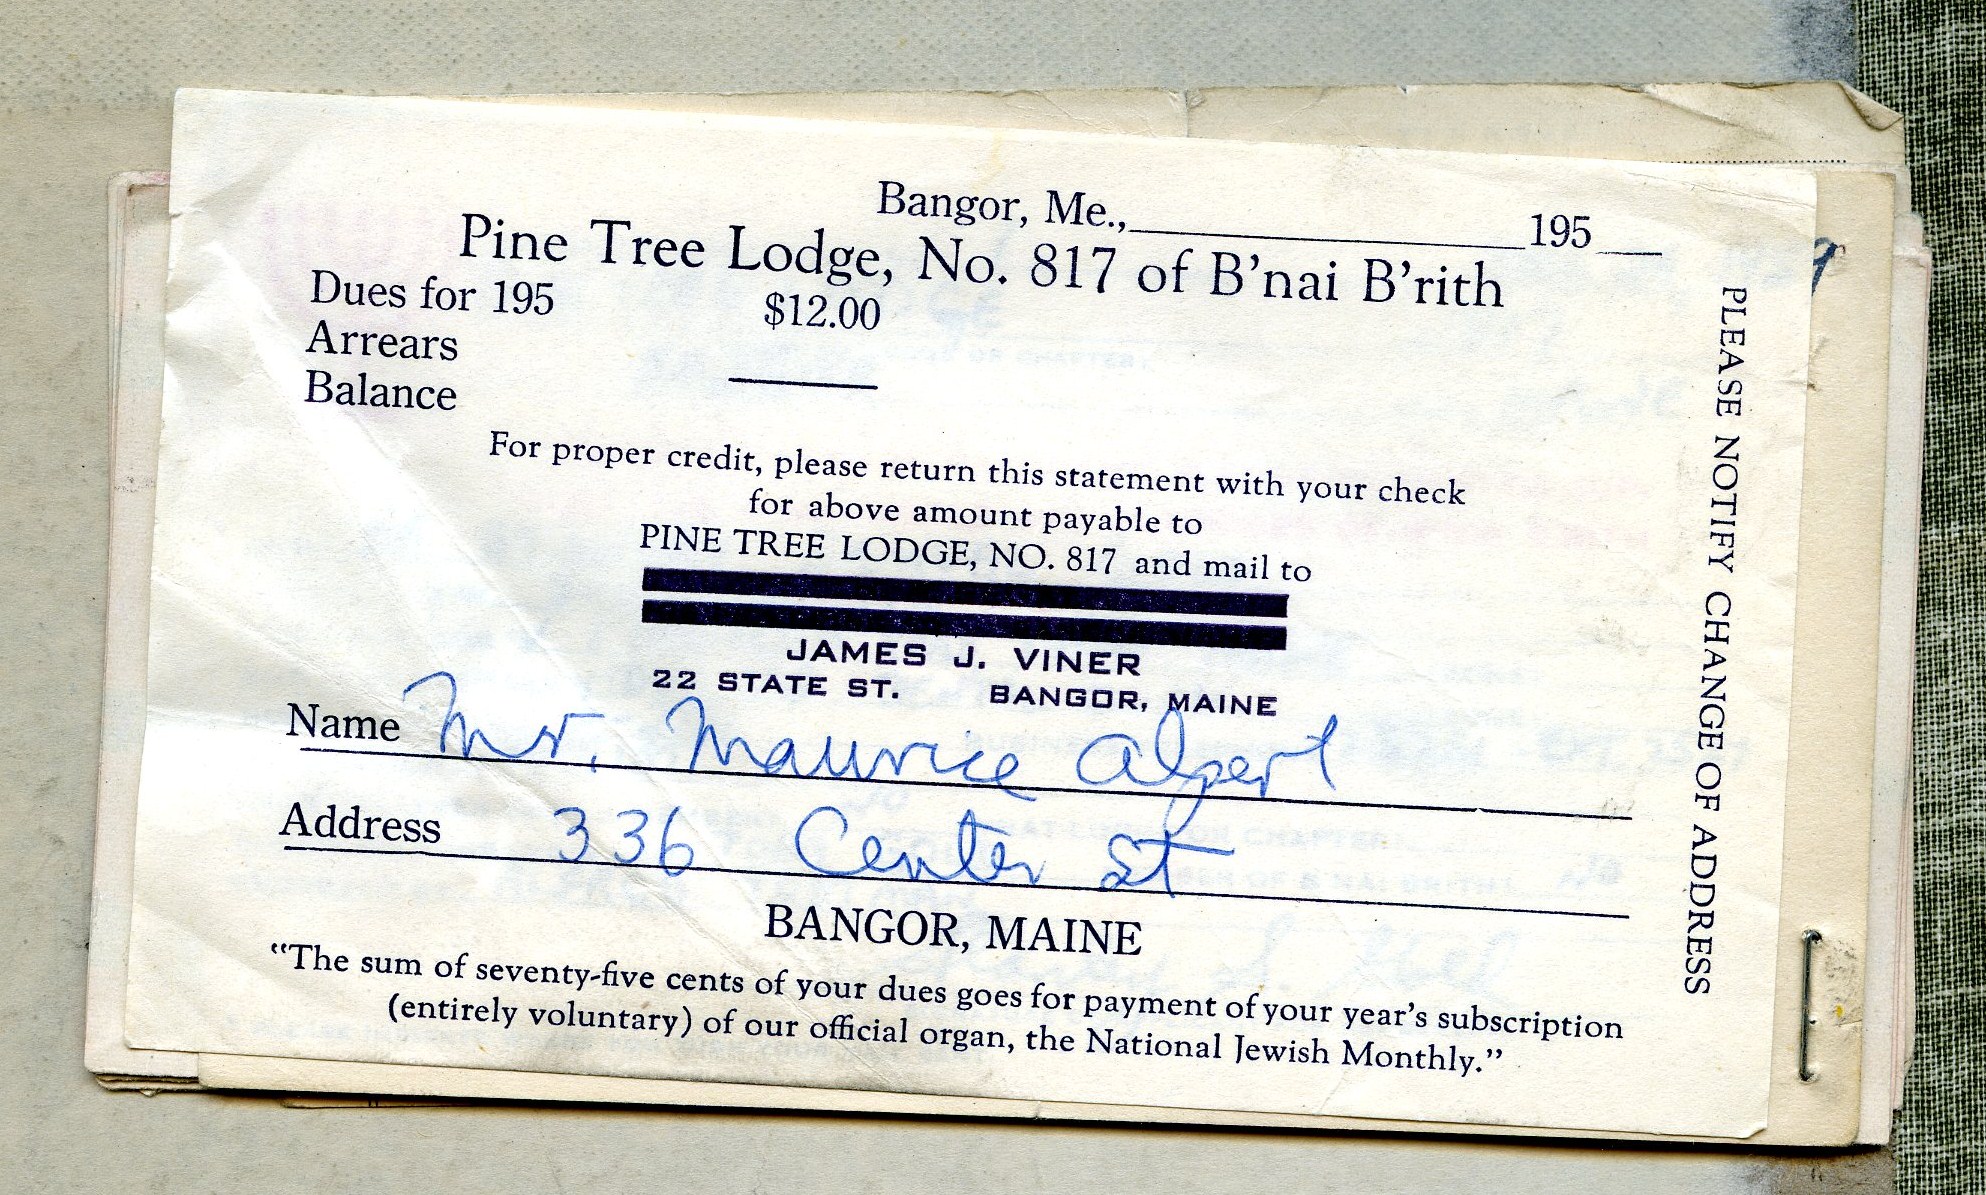 Bangor, Me., 195
Pine Tree Lodge, No. 817 of B'nai B'rith
Dues for 195 $12.00
Arrears
Balance
For proper credit, please return this statement with your check
for above amount payable to
PINE TREE LODGE, NO. 817 and mail to
JAMES J. VINER
22 STATE ST. BANGOR, MAINE
Name Mr. Maurice Alpert
Address 336 Center St
BANGOR, MAINE
"The sum of seventy-five cents of your dues goes for payment of your year's subscription
(entirely voluntary) of our official organ, the National Jewish Monthly."
PLEASE NOTIFY CHANGE OF ADDRESS